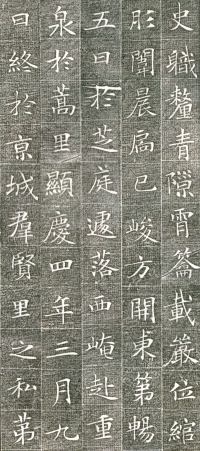 史職釐青隙霄簉載嚴位綰
彤闈晨扃已峻方開東第暢
五日於芝庭遽落西崦赴重
泉於蒿里顯慶四年三月九
日終於京城羣賢里之私第